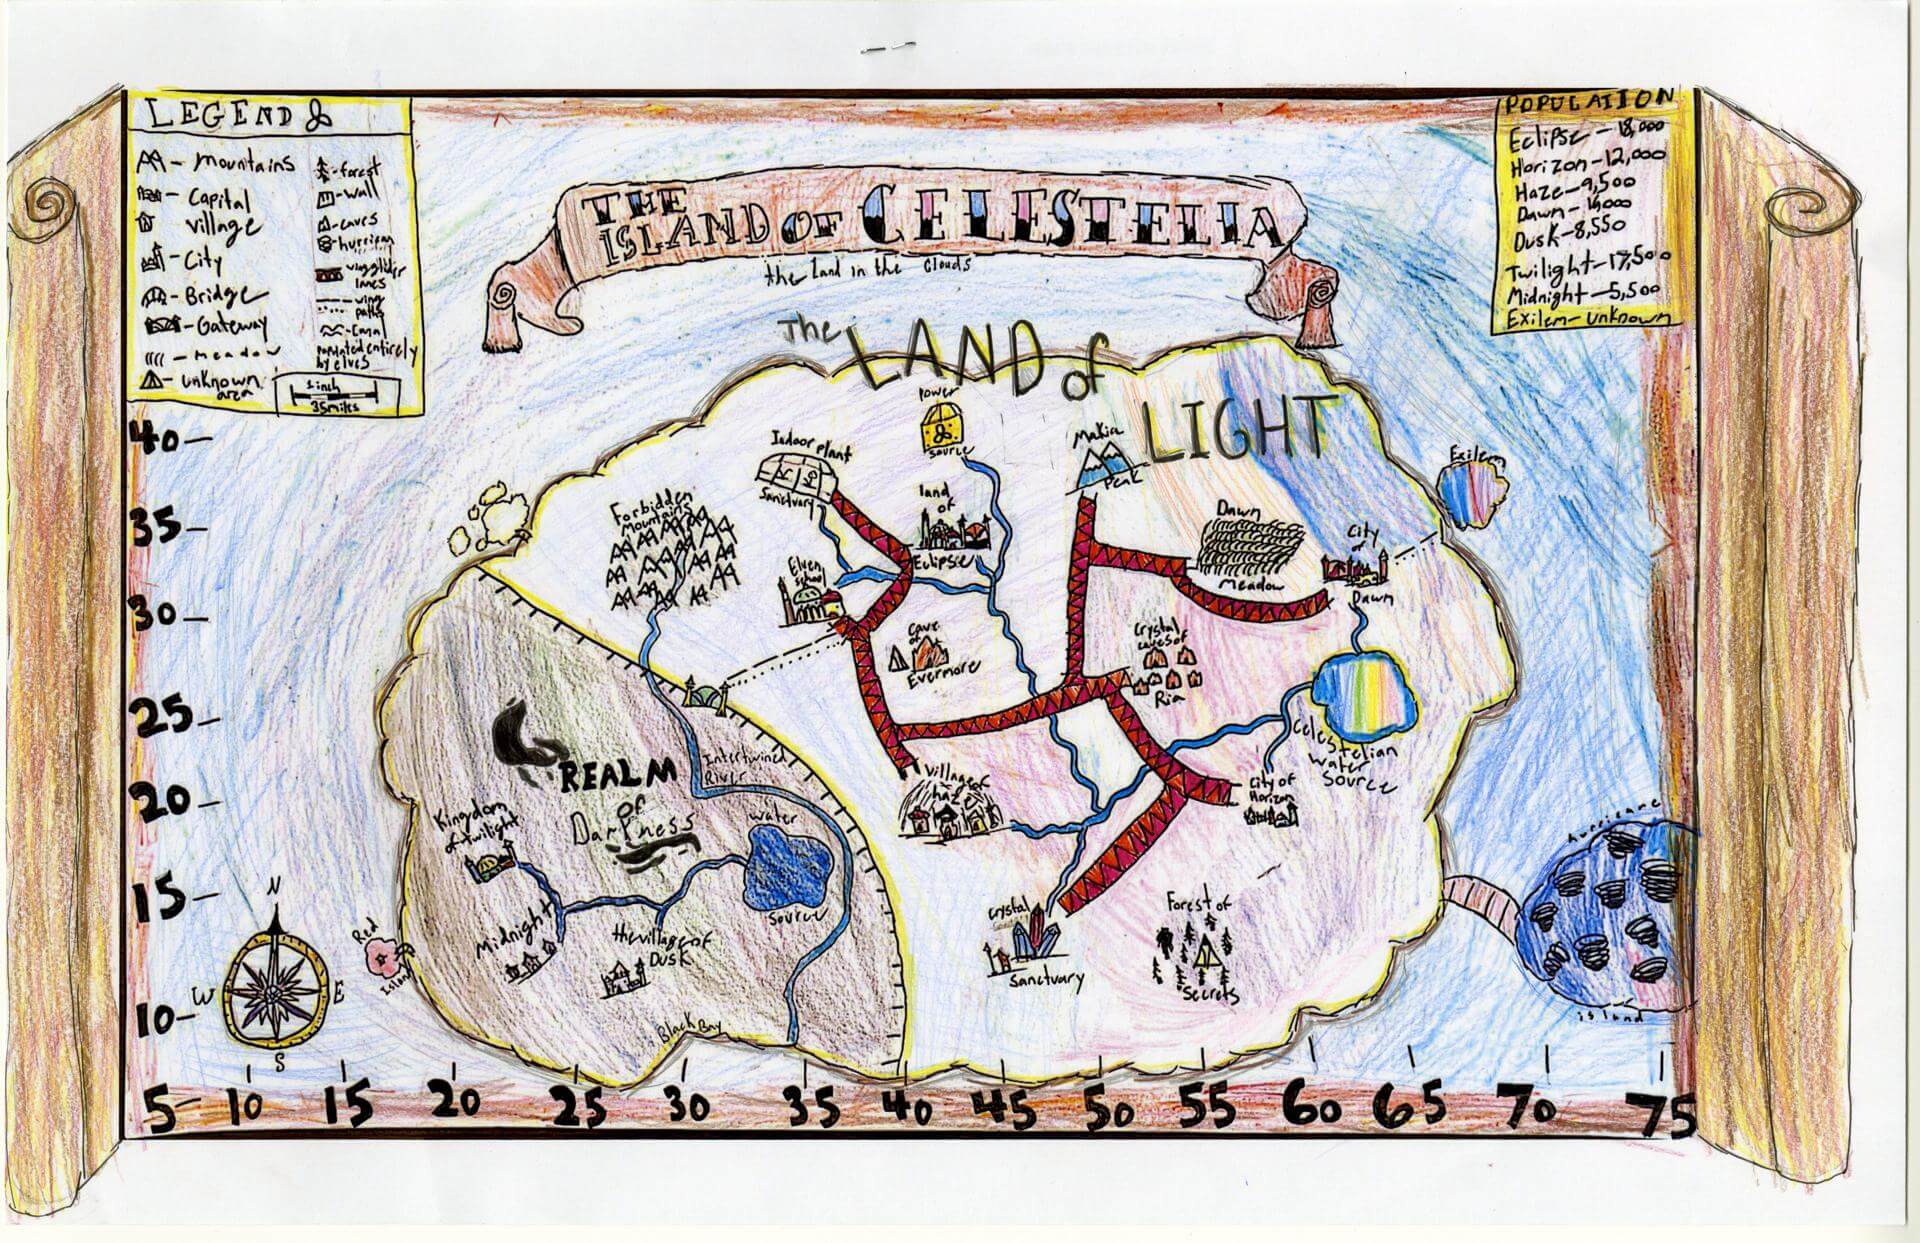 LEGEND
mountains
Capital
village
City
Bridge
Gateway
meadow
unknown
area
forest
wall
caves
hurrican
wingglider
lines
wing
paths
Canal
populated entirely
by elves
1 inch
35 miles
POPULATION
Eclipse - 18,000
Horizon - 12,000
Haze - 9,500
Dusk - 8,550
Twilight - 17,500
Midnight - 5,500
Exilem - unknown
THE
ISLAND OF CELESTELIA
the land in the clouds
The LAND of
LIGHT
Power
source
Indoor plant
Sanctuary
Forbidden
Mountains
land
of
Eclipse
Makia
Peak
Dawn
Meadow
City
of
Dawn
Exilem
Elven
school
Cave
of
Evermore
Crystal
caves of
Ria
Celestelian
water
Source
City of
Horizon
Village of
haze
Intertwined
River
REALM
of
Darkness
Kingdom
of twilight
water
source
Midnight
the village of
Dusk
Black Bay
Red
Island
crystal
Sanctuary
Forest of
Secrets
hurricane
island
N
W
E
S
40
35
30
25
20
15
10
5 10 15 20 25 30 35 40 45 50 55 60 65 70 75